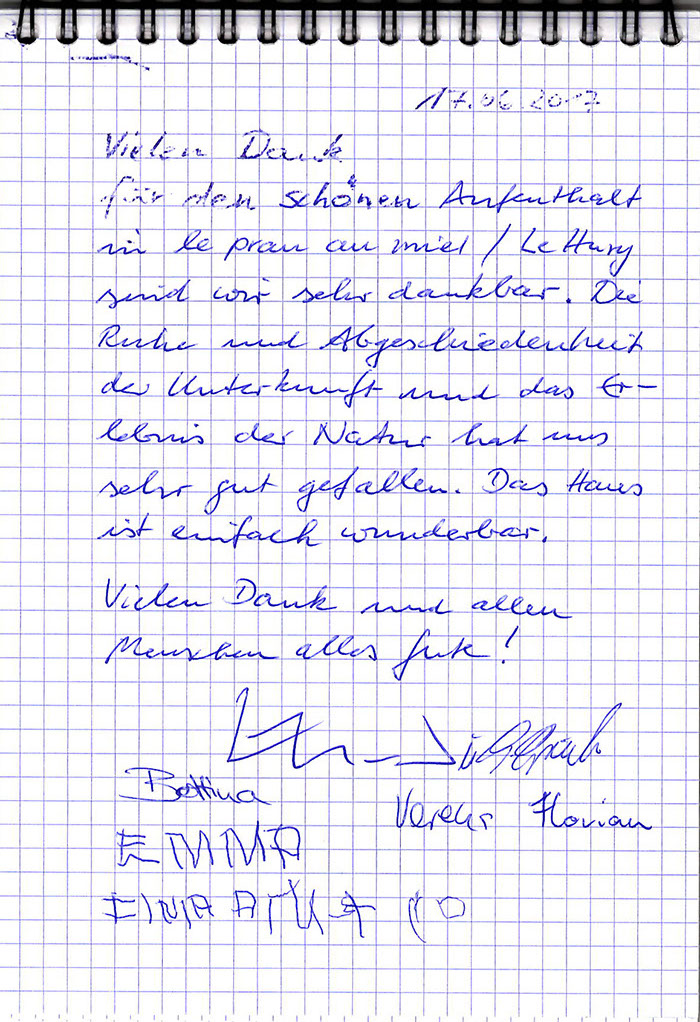 17.06.2017
Vielen Dank
für den schönen Aufenthalt
in le pran au miel / Le Hury
sind wir sehr dankbar. Die
Ruhe und Abgeschiedenheit
der Unterkunft und das Er-
lebnis der Natur hat uns
sehr gut gefallen. Das Haus
ist einfach wunderbar.
Vielen Dank und allen
Menschen alles Gute!
Bettina
Florian
EMMA